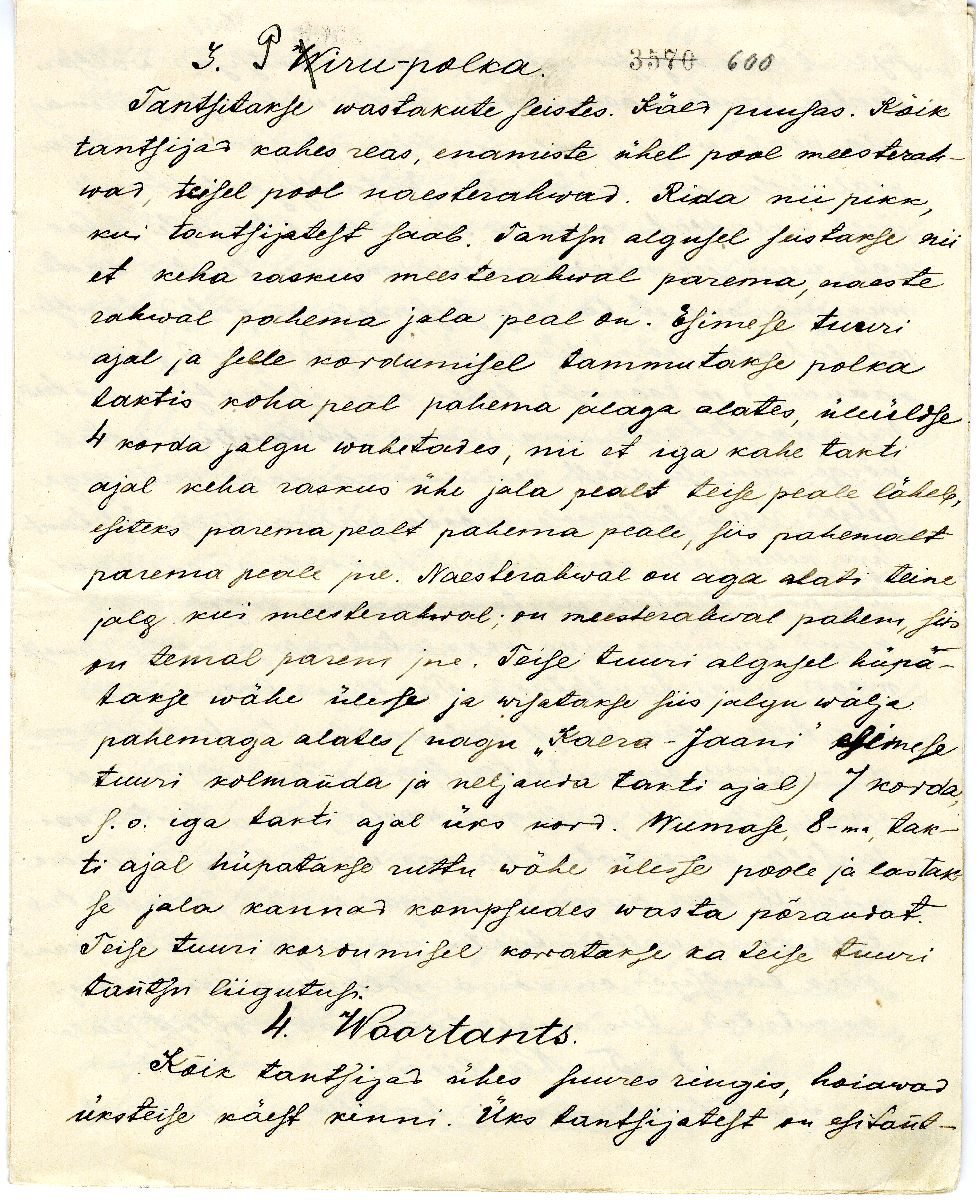 3. P Wiru-polka. 3570 600
Tantsitakse wastakute seistes. Käed puusas. Kõik
tantsijad kahes reas, enamiste ühel pool meesterah-
wad, teisel pool naesterahwad. Rida nii pikk,
kui tantsijatest saab. Tantsu algusel seistakse nii
et keha raskus meesterahwal parema, naeste
rahwal pahema jala peal on. Esimese tuuri
ajal ja selle kordumisel tammutakse polka
taktis koha peal pahema jalaga alates, üleüldse
4 korda jalgu wahetades, nii et iga kahe takti
ajal keha raskus ühe jala pealt teise peale läheb,
esiteks parema pealt pahema peale, siis pahemalt
parema peale jne. Naesterahwal on aga alati teine
jalg kui meesterahwal; on meesterahwal pahem, siis
on temal parem jne. Teise tuuri algusel hüpa-
takse wähe ülesse ja wisatakse siis jalgu wälja
pahemaga alates (nagu „Kaera-Jaani" esimese
tuuri kolmanda ja neljanda takti ajal) 7 korda,
s. o. iga takti ajal üks kord. Wiimase, 8-ma, tak-
ti ajal hüpatakse ruttu wähe ülesse poole ja lastak
se jala kannad kompsudes wasta põrandat.
Teise tuuri kordumisel korratakse ka teise tuuri
tantsu liigutusi.
4. Woortants.
Kõik tantsijad ühes suures ringis, hoiawad
üksteise käest kinni. Üks tantsijatest on esitant-